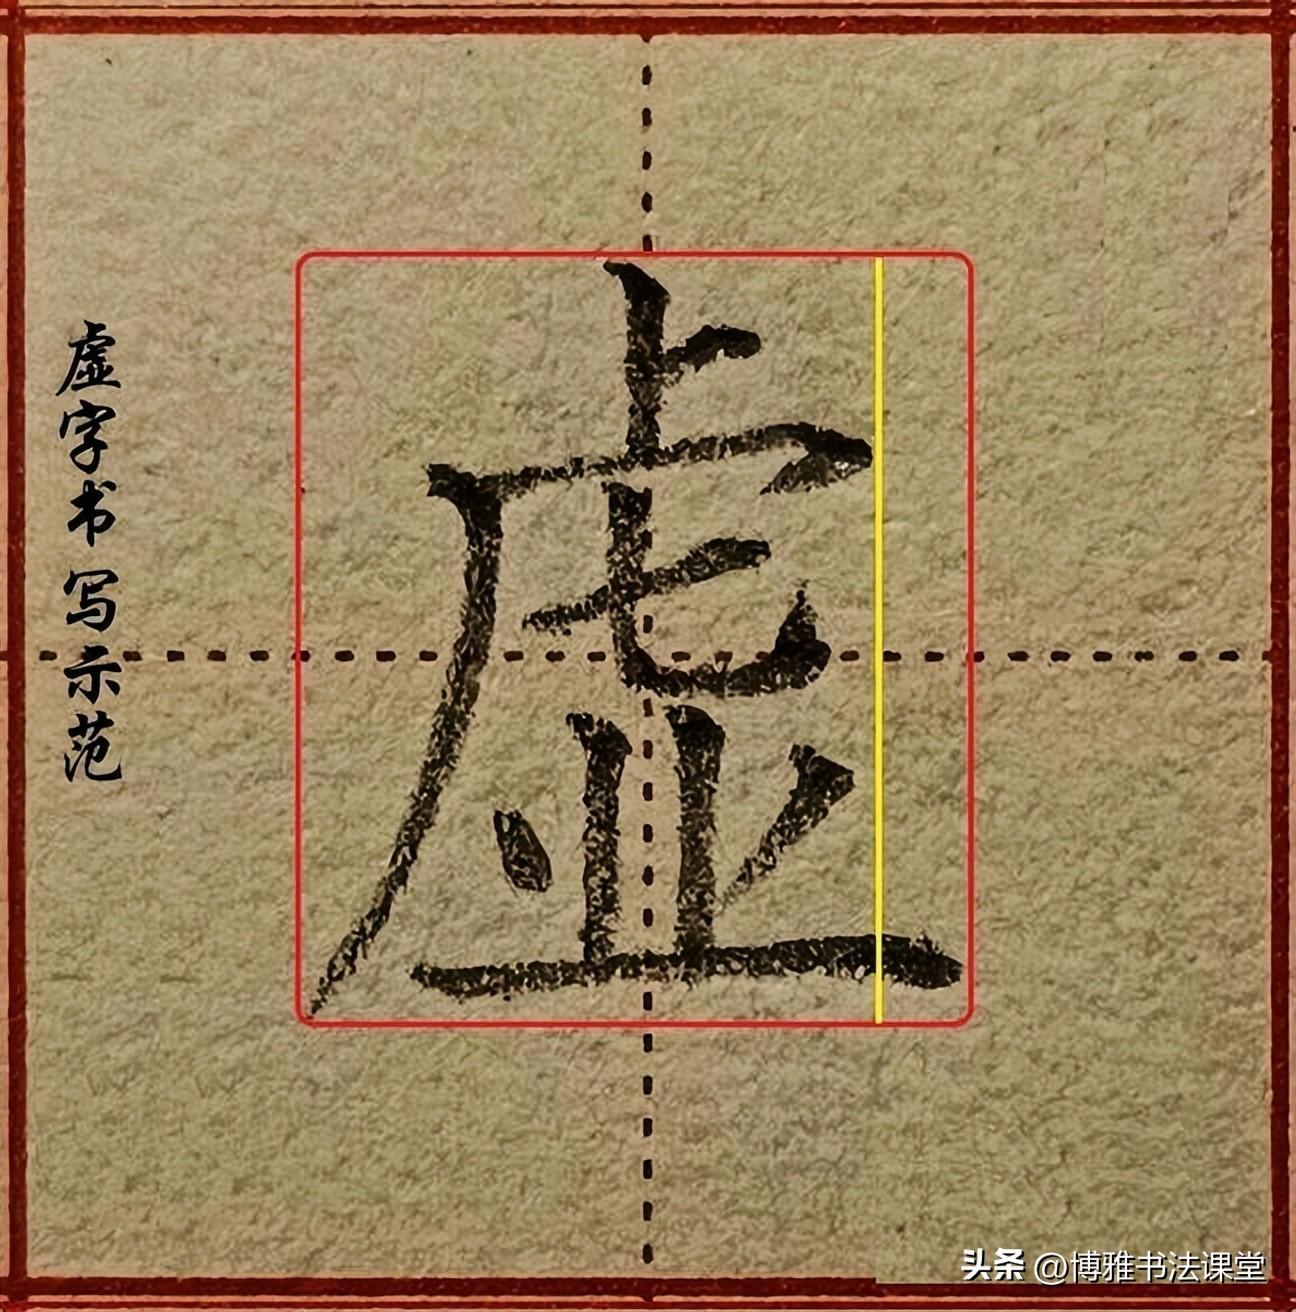 虚
虚字书写示范
头条 @博雅书法课堂